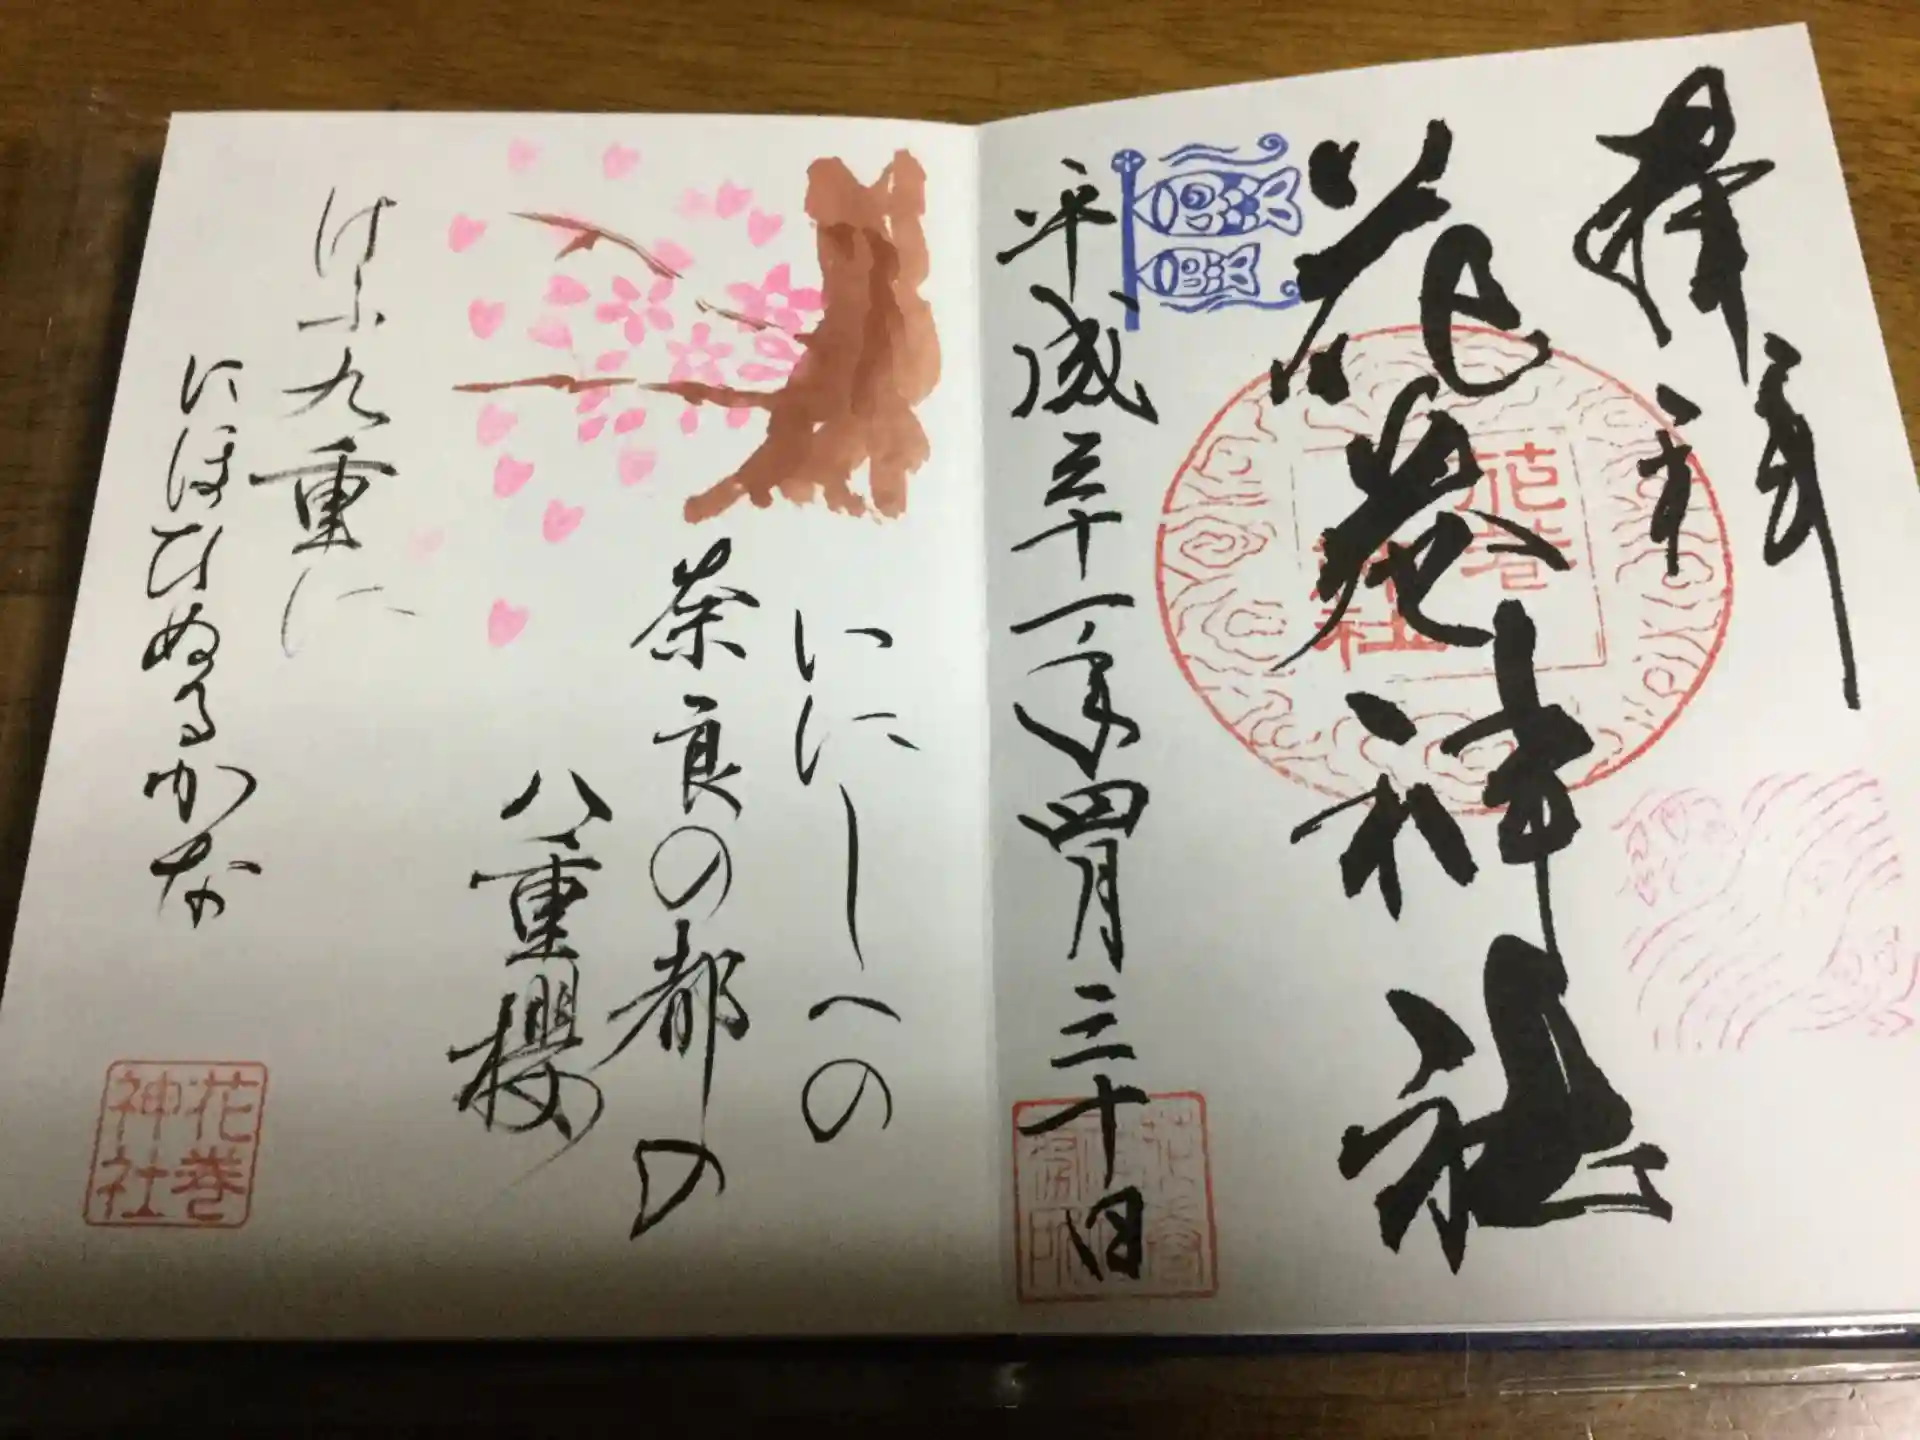 奉拝
花巻神社
花巻
神社
平成三十一年四月三十日
いにしへの
奈良の都の
八重櫻
けふ九重に
にほひぬるかな
花巻
神社